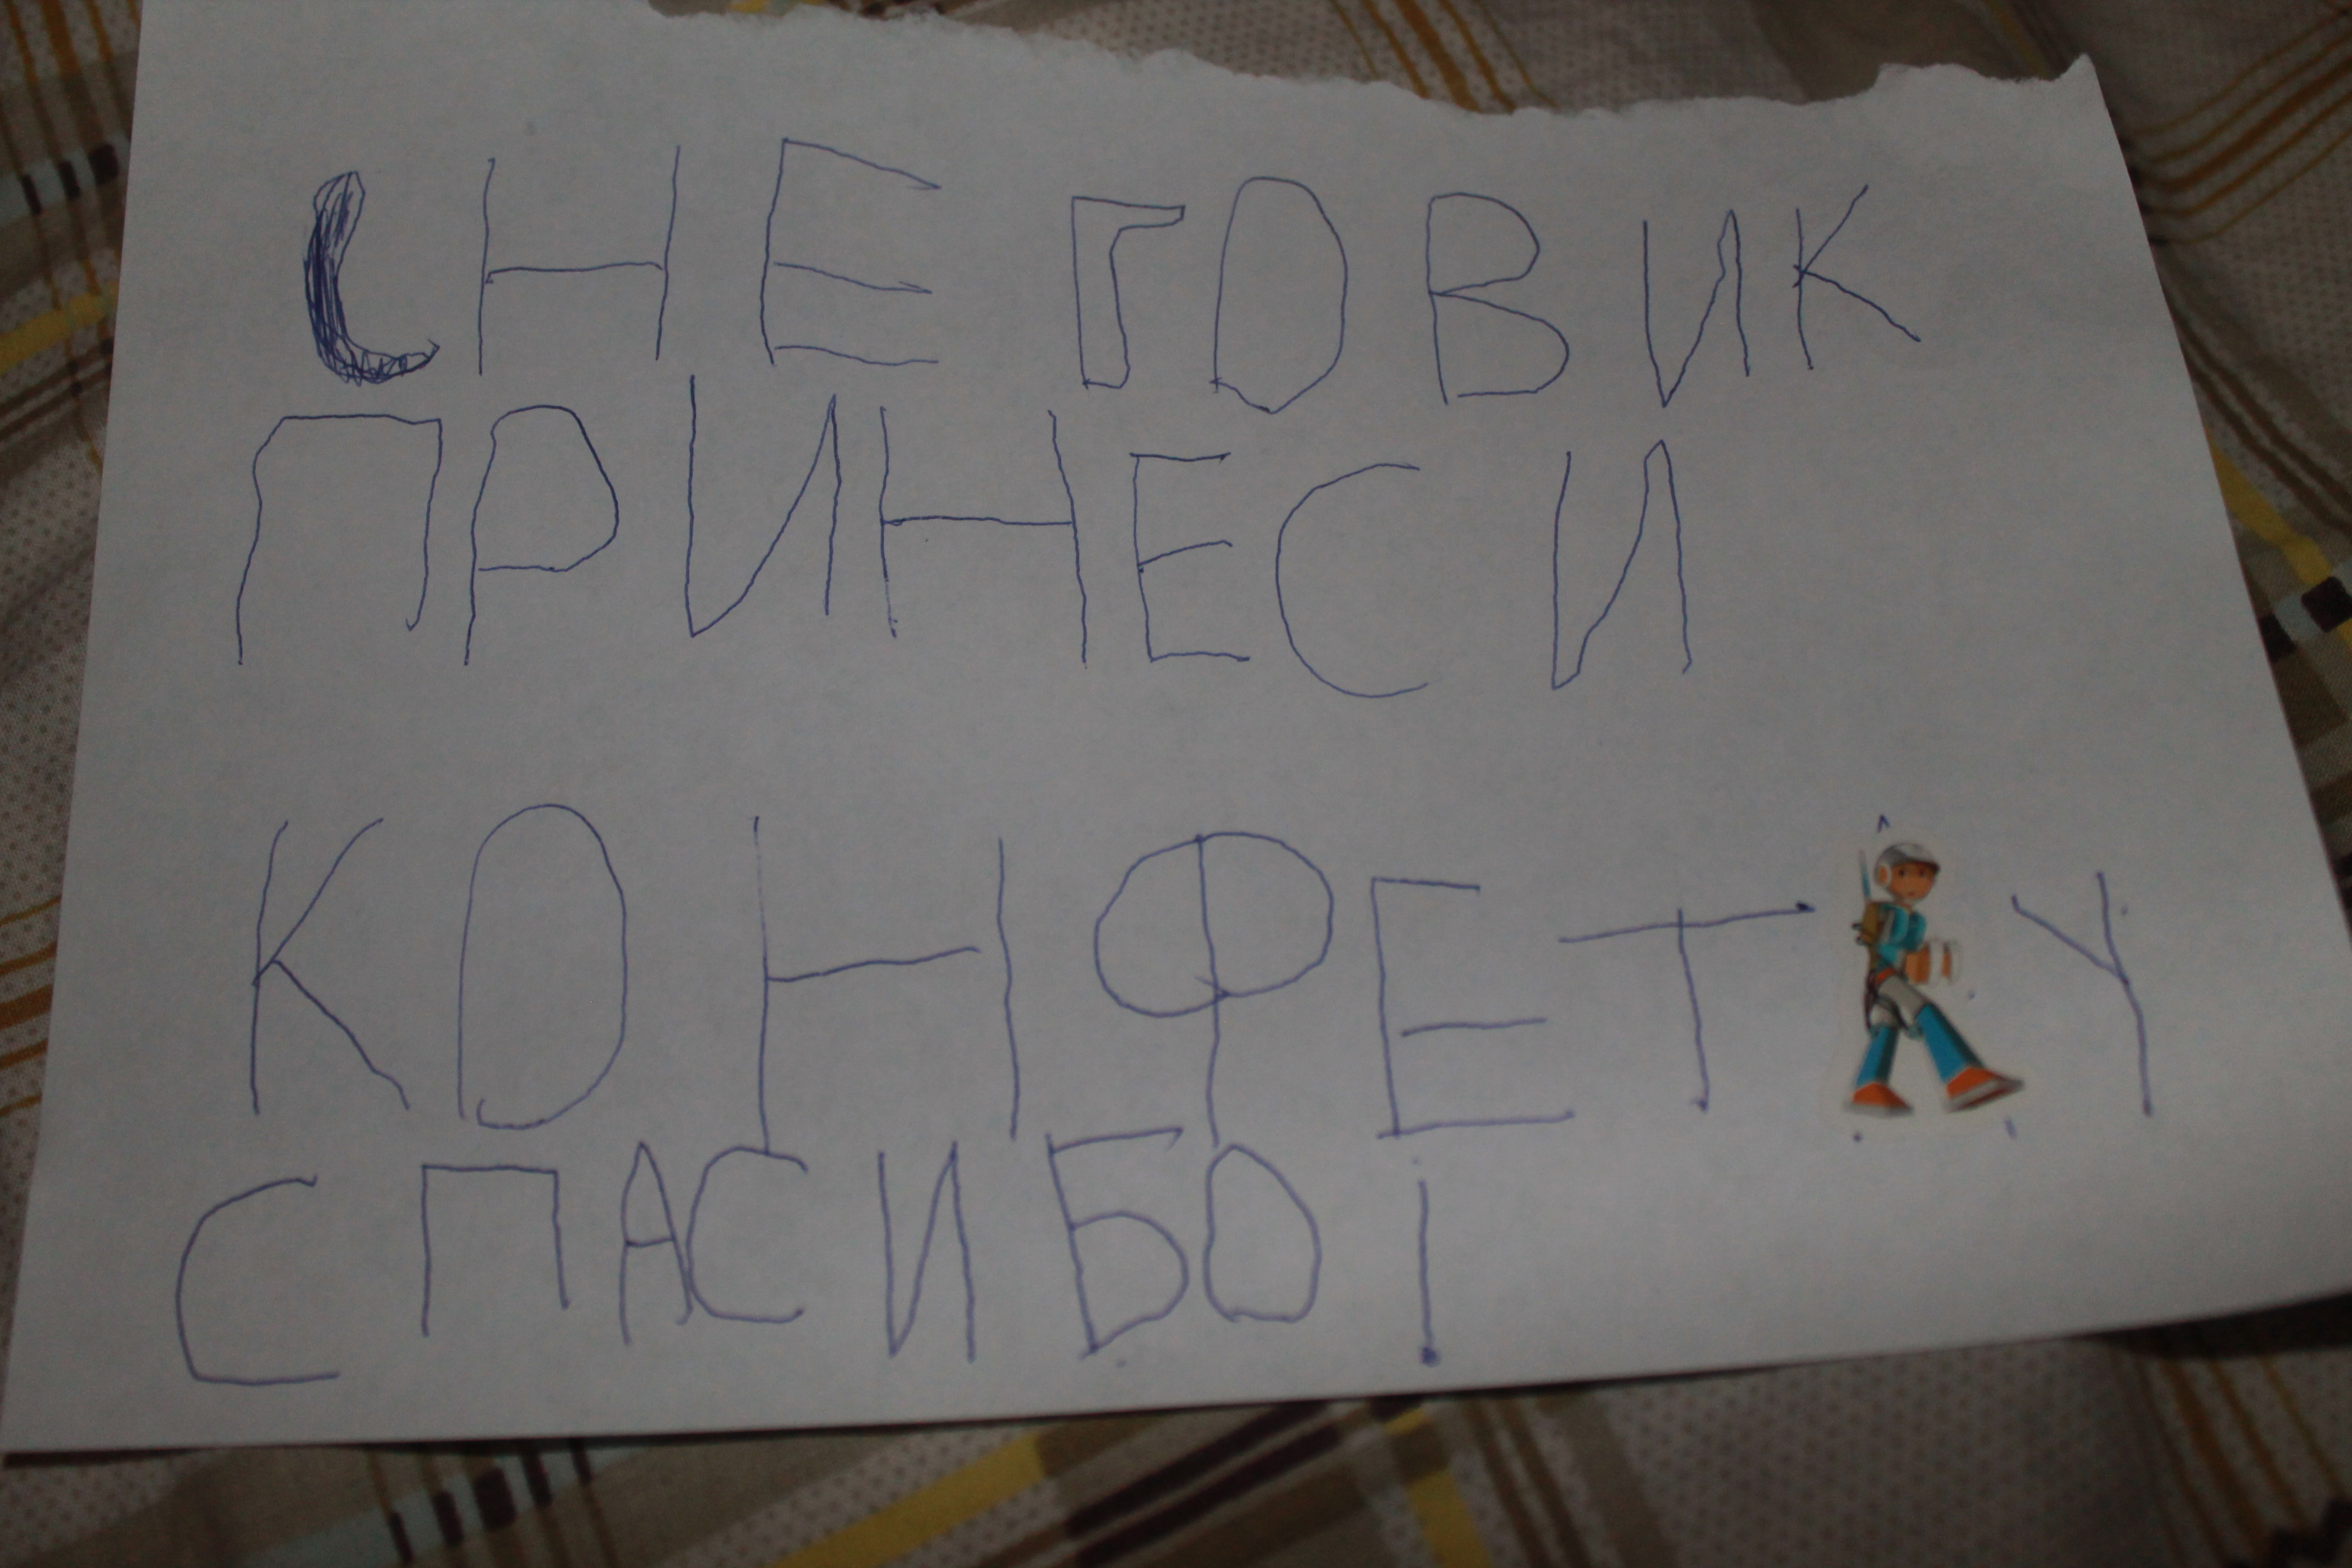 СНЕГОВИК
ПРИНЕСИ
КОНФЕТУ
СПАСИБО!